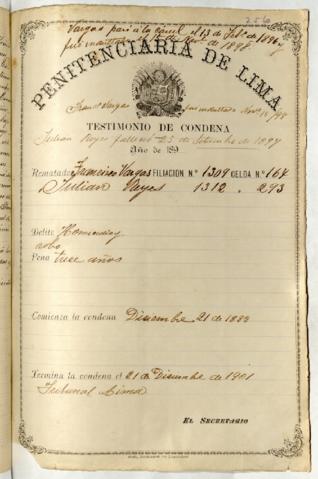 256
Vargas pasó á la carcel el 13 de Feb.o de 1896 y
fue indultado Nov. de 1898
PENITENCIARIA DE LIMA
Fran.co Vargas fue indultado Nov. 10/98
TESTIMONIO DE CONDENA
Julian Reyes falleció 25 de Setiembre de 1897
Año de 189
Rematado Francisco Vargas FILIACION N.º 1309 CELDA N.º 164
Julian Reyes 1312 " 293
Delito Homicidio y
robo
Pena trece años
Comienza la condena Diciembre 21 de 1888
Termina la condena el 21 de Diciembre de 1901
Tribunal Lima
EL SECRETARIO